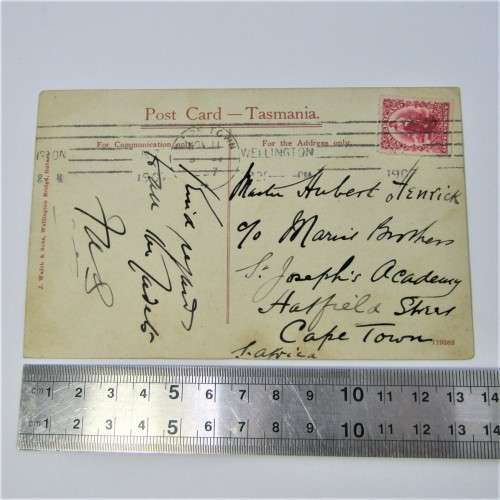 Post Card — Tasmania.
For Communication only.
For the Address only.
WELLINGTON
Kind regards
to all the Cadets
Master Hubert Henrick
c/o Marist Brothers
St. Joseph's Academy
Hatfield Street
Cape Town
S. Africa
J. Walch & Sons, Wellington Bridge, Hobart.
cm 1 2 3 4 5 6 7 8 9 10 11 12 13 14
cm 1 2 3 4 5 6 7 8 9 10 11 12 13 14